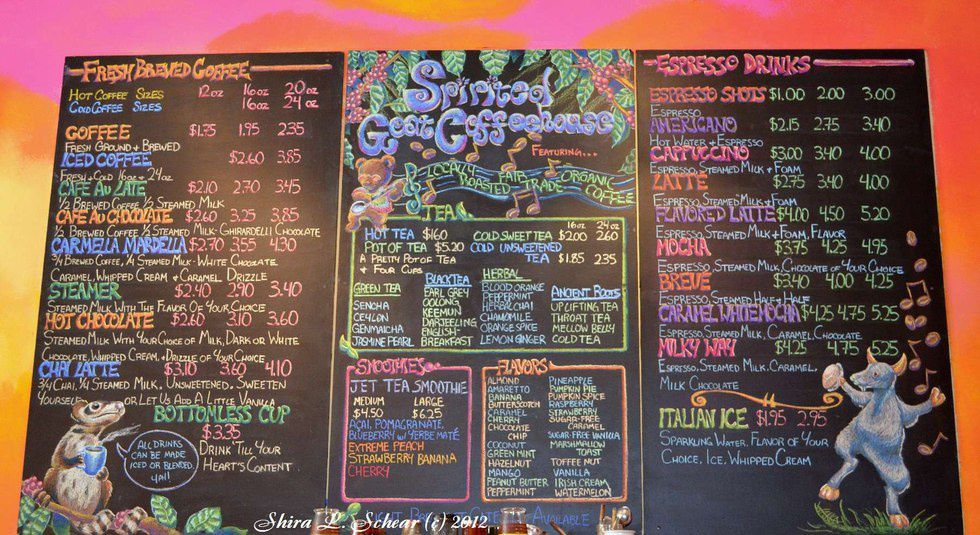 FRESH BREWED COFFEE
HOT COFFEE SIZES 12oz 16oz 20oz
COLD COFFEE SIZES 16oz 24oz
COFFEE $1.75 1.95 2.35
FRESH GROUND & BREWED
ICED COFFEE $2.60 3.85
FRESH & COLD 16oz & 24oz
CAFE AU LATE $2.10 2.70 3.45
1/2 BREWED COFFEE 1/2 STEAMED MILK
CAFE AU CHOCOLATE $2.60 3.25 3.85
1/2 BREWED COFFEE 1/2 STEAMED MILK- GHIRARDELLI CHOCOLATE
CARMELLA MARDELLA $2.70 3.55 4.30
3/4 BREWED COFFEE, 1/4 STEAMED MILK- WHITE CHOCOLATE
CARAMEL, WHIPPED CREAM & CARAMEL DRIZZLE
STEAMER $2.40 2.90 3.40
STEAMED MILK WITH THE FLAVOR OF YOUR CHOICE
HOT CHOCOLATE $2.60 3.10 3.60
STEAMED MILK WITH YOUR CHOICE OF MILK, DARK OR WHITE
CHOCOLATE, WHIPPED CREAM, & DRIZZLE OF YOUR CHOICE
CHAI LATTE $3.10 3.60 4.10
3/4 CHAI, 1/4 STEAMED MILK, UNSWEETENED, SWEETEN
YOURSELF OR LET US ADD A LITTLE VANILLA
BOTTOMLESS CUP
$3.35
DRINK 'TILL YOUR
HEART'S CONTENT
ALL DRINKS
CAN BE MADE
ICED OR BLENDED,
YA'LL!
Spirited
Goat Coffeehouse
FEATURING...
LOCALLY ROASTED FAIR TRADE ORGANIC COFFEE
TEA
HOT TEA $1.60
POT OF TEA $5.20
A PRETTY POT OF TEA
& FOUR CUPS
16oz 24oz
COLD SWEET TEA $2.00 2.60
COLD UNSWEETENED
TEA $1.85 2.35
GREEN TEA
SENCHA
CEYLON
GENMAICHA
JASMINE PEARL
BLACK TEA
EARL GREY
OOLONG
KEEMUN
DARJEELING
ENGLISH-
BREAKFAST
HERBAL
BLOOD ORANGE
PEPPERMINT
HERBAL CHAI
CHAMOMILE
ORANGE SPICE
LEMON GINGER
ANCIENT ROOTS
UPLIFTING TEA
THROAT TEA
MELLOW BELLY
COLD TEA
SMOOTHIES
JET TEA SMOOTHIE
MEDIUM LARGE
$4.50 $6.25
AÇAI, POMAGRANATE,
BLUEBERRY w/ YERBE MATÉ
EXTREME PEACH
STRAWBERRY BANANA
CHERRY
FLAVORS
ALMOND
AMARETTO
BANANA
BUTTERSCOTCH
CARAMEL
CHERRY
CHOCOLATE
CHIP
COCONUT
GREEN MINT
HAZELNUT
MANGO
PEANUT BUTTER
PEPPERMINT
PINEAPPLE
PUMPKIN PIE
PUMPKIN SPICE
RASPBERRY
STRAWBERRY
SUGAR-FREE
CARAMEL
SUGAR-FREE VANILLA
MARSHMALLOW
TOAST
TOFFEE NUT
VANILLA
IRISH CREAM
WATERMELON
ESPRESSO DRINKS
ESPRESSO SHOTS $1.00 2.00 3.00
ESPRESSO
AMERICANO $2.15 2.75 3.40
HOT WATER & ESPRESSO
CAPPUCCINO $3.00 3.40 4.00
ESPRESSO, STEAMED MILK & FOAM
LATTE $2.75 3.40 4.00
ESPRESSO, STEAMED MILK & FOAM
FLAVORED LATTE $4.00 4.50 5.20
ESPRESSO, STEAMED MILK & FOAM, FLAVOR
MOCHA $3.75 4.25 4.95
ESPRESSO, STEAMED MILK, CHOCOLATE OF YOUR CHOICE
BREVE $3.40 4.00 4.25
ESPRESSO, STEAMED HALF & HALF
CARAMEL WHITE MOCHA $4.25 4.75 5.25
ESPRESSO, STEAMED MILK, CARAMEL, CHOCOLATE
MILKY WAY $4.25 4.75 5.25
ESPRESSO, STEAMED MILK, CARAMEL,
MILK CHOCOLATE
ITALIAN ICE $1.95 2.95
SPARKLING WATER, FLAVOR OF YOUR
CHOICE, ICE, WHIPPED CREAM
AVAILABLE
Shira L. Schear (c) 2012